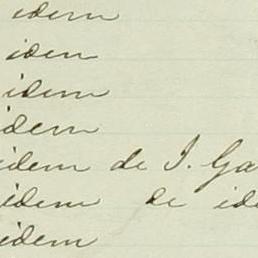 idem
idem
idem
idem
idem de I. Ga
idem de ide
idem